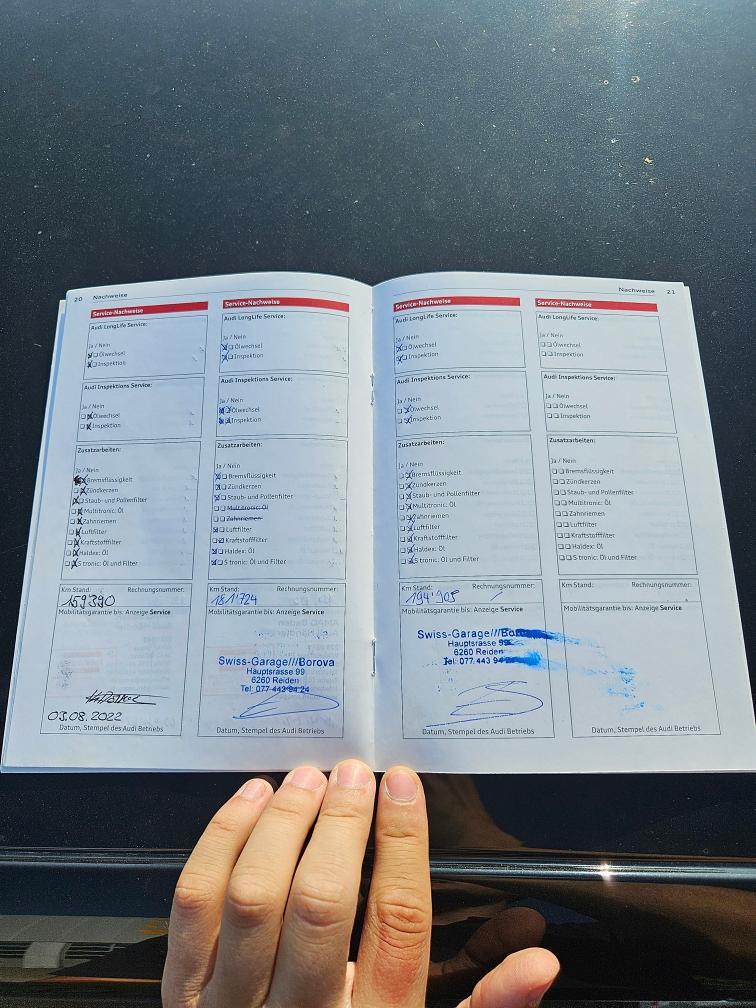 20 Nachweise
Service-Nachweise
Audi LongLife Service:
Ja / Nein
Ölwechsel
Inspektion
Audi Inspektions Service:
Ja / Nein
Ölwechsel
Inspektion
Zusatzarbeiten:
Ja / Nein
Bremsflüssigkeit
Zündkerzen
Staub- und Pollenfilter
Multitronic: Öl
Zahnriemen
Luftfilter
Kraftstofffilter
Haldex: Öl
S tronic: Öl und Filter
Km Stand: Rechnungsnummer:
159390
Mobilitätsgarantie bis: Anzeige Service
03.08.2022
Datum, Stempel des Audi Betriebs
Service-Nachweise
Audi LongLife Service:
Ja / Nein
Ölwechsel
Inspektion
Audi Inspektions Service:
Ja / Nein
Ölwechsel
Inspektion
Zusatzarbeiten:
Ja / Nein
Bremsflüssigkeit
Zündkerzen
Staub- und Pollenfilter
Multitronic: Öl
Zahnriemen
Luftfilter
Kraftstofffilter
Haldex: Öl
S tronic: Öl und Filter
Km Stand: Rechnungsnummer:
181'724
Mobilitätsgarantie bis: Anzeige Service
Swiss-Garage///Borova
Hauptstrasse 99
6260 Reiden
Tel: 077 443 94 24
Datum, Stempel des Audi Betriebs
Nachweise 21
Service-Nachweise
Audi LongLife Service:
Ja / Nein
Ölwechsel
Inspektion
Audi Inspektions Service:
Ja / Nein
Ölwechsel
Inspektion
Zusatzarbeiten:
Ja / Nein
Bremsflüssigkeit
Zündkerzen
Staub- und Pollenfilter
Multitronic: Öl
Zahnriemen
Luftfilter
Kraftstofffilter
Haldex: Öl
S tronic: Öl und Filter
Km Stand: Rechnungsnummer:
194'905
Mobilitätsgarantie bis: Anzeige Service
Swiss-Garage///
Hauptstrasse 99
6260 Reiden
Tel: 077 443 94
Datum, Stempel des Audi Betriebs
Service-Nachweise
Audi LongLife Service:
Ja / Nein
Ölwechsel
Inspektion
Audi Inspektions Service:
Ja / Nein
Ölwechsel
Inspektion
Zusatzarbeiten:
Ja / Nein
Bremsflüssigkeit
Zündkerzen
Staub- und Pollenfilter
Multitronic: Öl
Zahnriemen
Luftfilter
Kraftstofffilter
Haldex: Öl
S tronic: Öl und Filter
Km Stand: Rechnungsnummer:
Mobilitätsgarantie bis: Anzeige Service
Datum, Stempel des Audi Betriebs